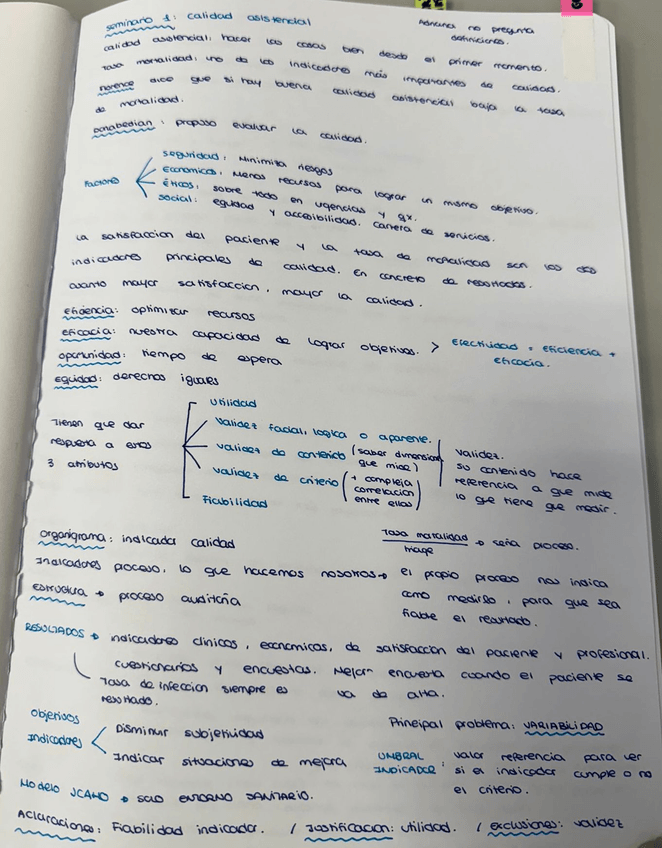 seminario 1: calidad asistencial
Adriana no pregunta
definiciones.
calidad asistencial: hacer las cosas bien desde el primer momento.
Tasa mortalidad: uno de los indicadores más importantes de calidad.
Florence dice que si hay buena calidad asistencial baja la tasa
de mortalidad.
Donabedian: propuso evaluar la calidad.
Factores
seguridad: Minimiza riesgos
Económicos: Menos recursos para lograr un mismo objetivo.
Éticos: sobre todo en urgencias y qx.
social: equidad y accesibilidad. Cartera de servicios.
La satisfaccion del paciente y la tasa de mortalidad son los dos
indicadores principales de calidad. En concreto de resultados.
cuanto mayor satisfaccion, mayor la calidad.
Eficiencia: optimizar recursos
Eficacia: nuestra capacidad de lograr objetivos. > Efectividad = eficiencia +
eficacia.
oportunidad: tiempo de espera
Equidad: derechos iguales
Tienen que dar
respuesta a estos
3 atributos
Utilidad
validez facial, lógica o aparente.
validez de contenido (saber dimension
que mide)
validez de criterio (+ compleja
correlacion
entre ellas)
Fiabilidad
validez.
su contenido hace
referencia a que mide
lo que tiene que medir.
Organigrama: indicador calidad
Tasa mortalidad → sería proceso.
triage
Indicadores proceso, lo que hacemos nosotros → el propio proceso nos indica
como medirlo, para que sea
fiable el resultado.
Estructura → proceso auditoría
RESULTADOS → indicadores clínicos, económicos, de satisfacción del paciente y profesional.
cuestionarios y encuestas. Mejor encuesta cuando el paciente se
va de alta.
Tasa de infeccion siempre es
resultado.
Objetivos
Indicadores
Disminuir subjetividad
Indicar situaciones de mejora
Principal problema: VARIABILIDAD
UMBRAL
INDICADOR: valor referencia para ver
si el indicador cumple o no
el criterio.
Modelo JCAHO → SOLO ENTORNO SANITARIO.
Aclaraciones: Fiabilidad indicador. / Justificacion: utilidad. / exclusiones: validez